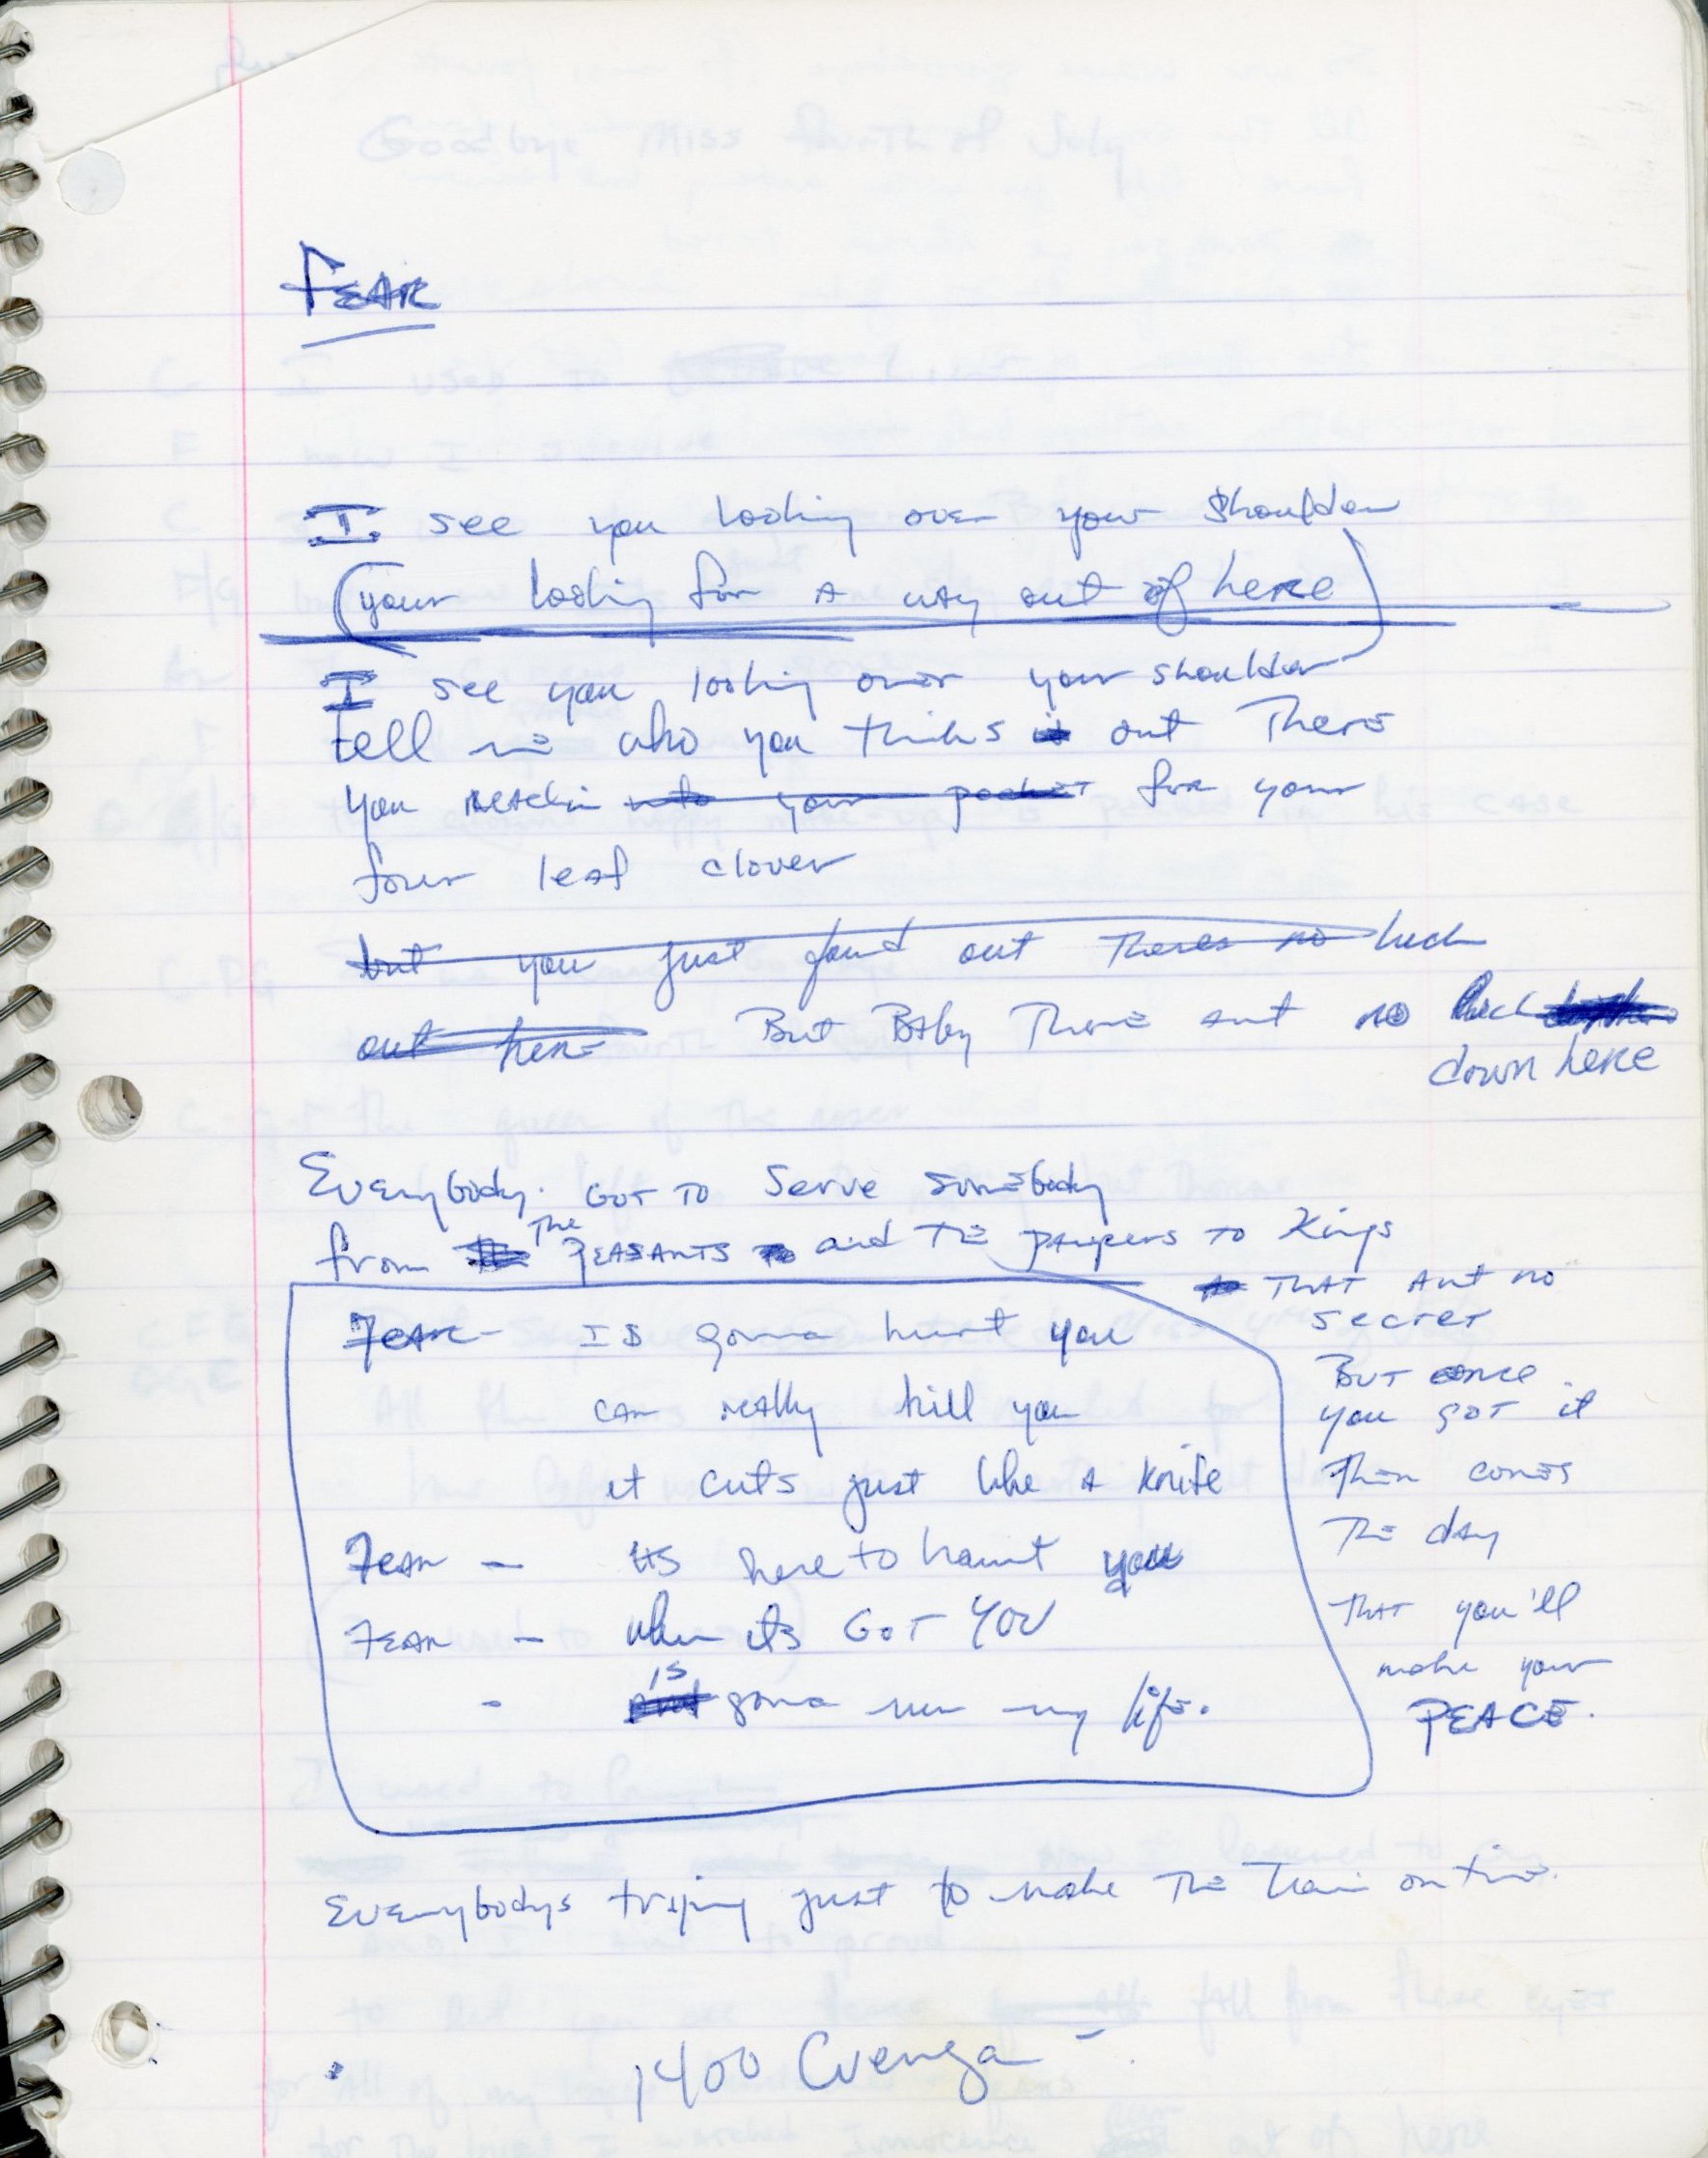 FEAR
I see you looking over your shoulder
(your looking for A way out of here)
I see you looking over your shoulder
tell me who you thinks out There
You reachin into your pocket for your
four leaf clover
but you just found out Theres no luck
out here But BAby There aint no luck
down here
Everybody GOT TO Serve Somebody
from The PEASANTS and The paupers to Kings
THAT Aint no
secret
BUT once
you GOT it
Then comes
The day
THAT you'll
make your
PEACE.
Fear - IS gonna hurt you
can really kill you
it cuts just like A knife
Fear - its here to haunt you
Fear - when its GOT YOU
- is gonna run my life.
Everybodys trying just to make The Train on time.
1400 Cuenga -